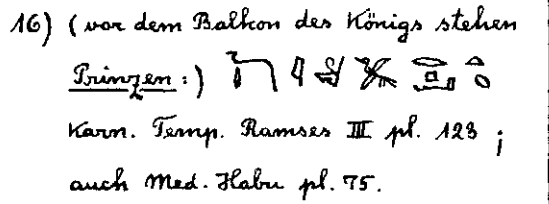 16) (vor dem Balkon des Königs stehen
Prinzen:)
Karn. Temp. Ramses III pl. 123;
auch Med. Habu pl. 75.